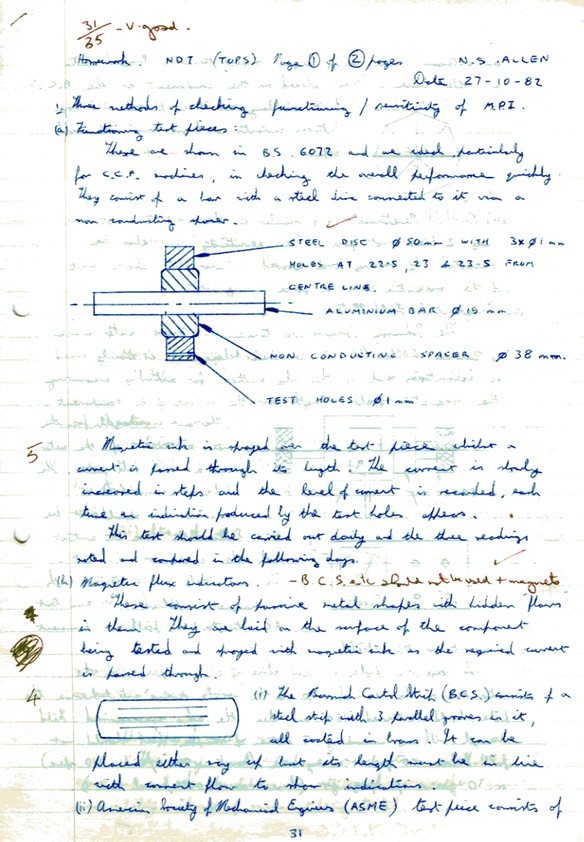 31/35 - V. good.
Homework NDT (TOPS) Page ① of ② pages N.S. ALLEN
Date 27-10-82
1, Three methods of checking functioning / sensitivity of MPI.
(a) Functioning test pieces:
These are shown in BS 6072 and are ideal, particularly
for C.C.F. machines, in checking the overall performance quickly.
They consist of a bar with a steel disc connected to it via a
non conducting spacer.
STEEL DISC Ø 50mm WITH 3x Ø1mm
HOLES AT 22.5, 23 & 23.5 FROM
CENTRE LINE.
ALUMINIUM BAR Ø 19 mm.
NON CONDUCTING SPACER Ø 38 mm.
TEST HOLES Ø 1 mm
5
Magnetic ink is sprayed over the test piece whilst a
current is passed through its length. The current is slowly
increased in steps and the level of current is recorded, each
time an indication produced by the test holes appears.
This test should be carried out daily and the three readings
noted and compared in the following days.
(b) Magnetic flux indicators. - B.C.S. etc should not be used + magnets
These consist of passive metal shapes with hidden flaws
in them. They are laid on the surface of the component
being tested and sprayed with magnetic ink as the required current
is passed through.
4
(i) The Burmah Castrol Strip (B.C.S.) consists of a
steel strip with 3 parallel grooves in it,
all coated in brass. It can be
placed either way up but its length must be in line
with current flow to show indications.
(ii) American Society of Mechanical Engineers (ASME) test piece consists of
31